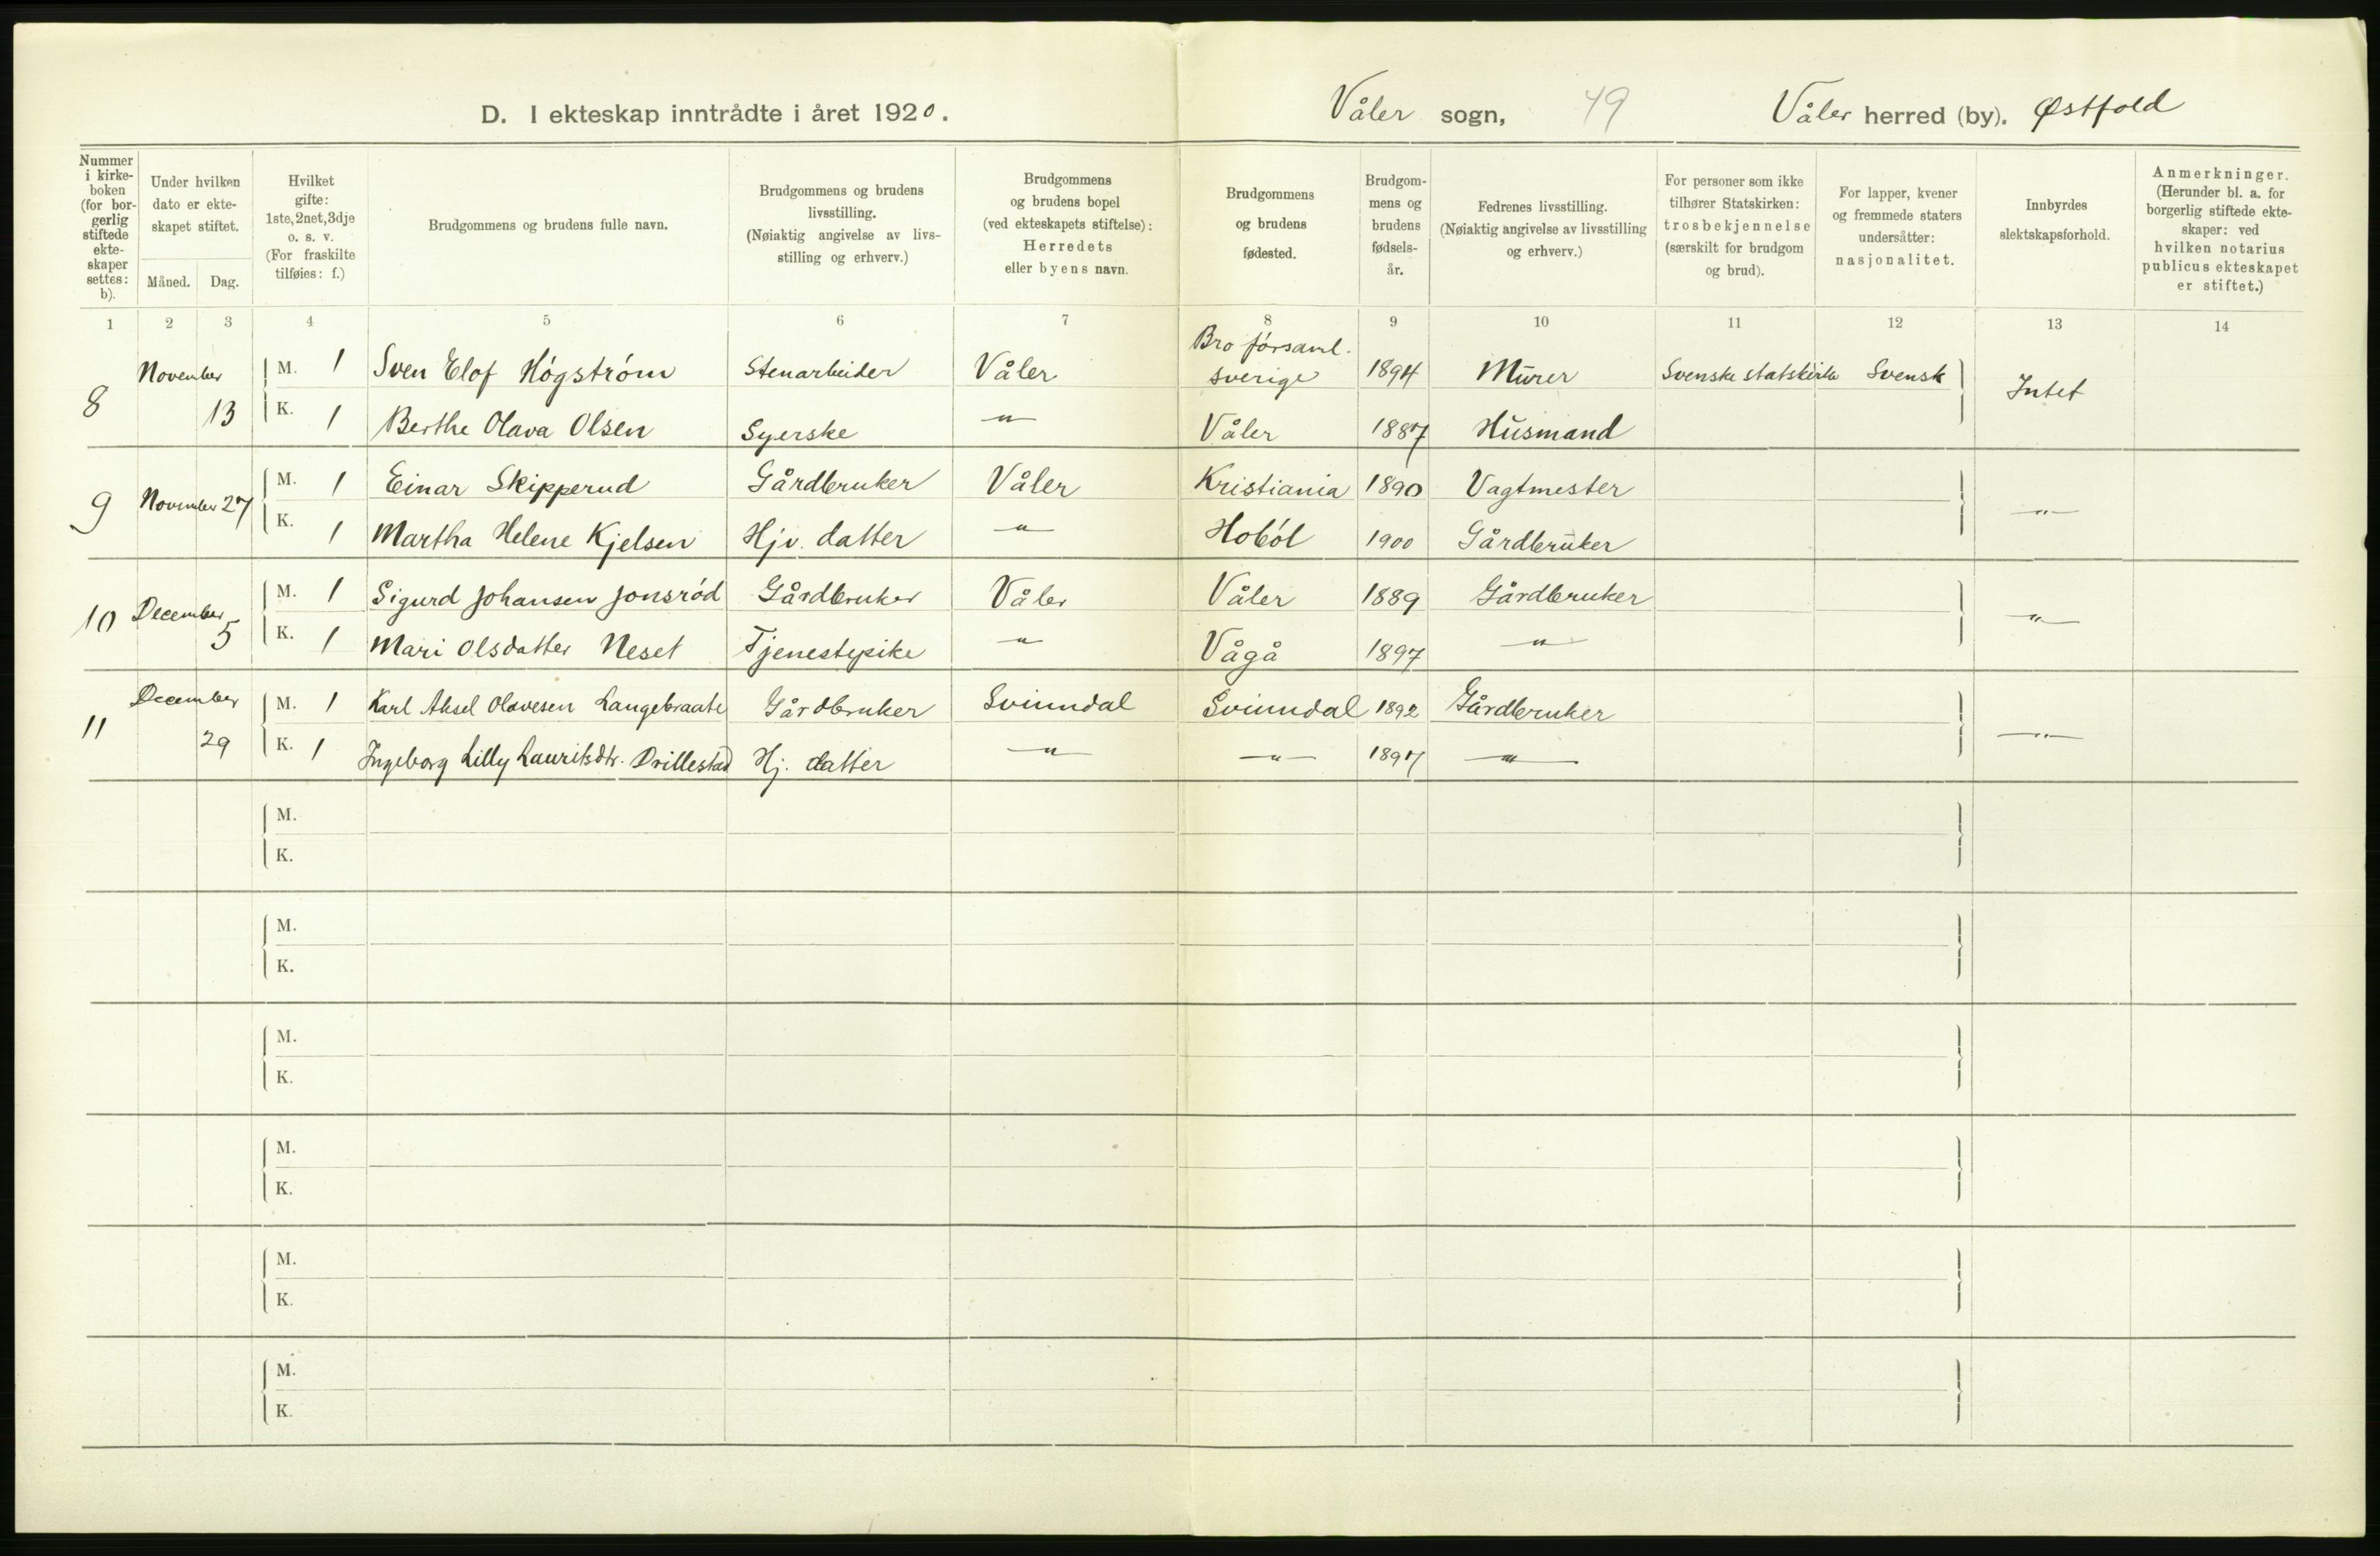 D. I ekteskap inntrådte i året 1920. Våler sogn, 49 Våler herred (by). Østfold
Nummer i kirkeboken (for borgerlig stiftede ekteskaper settes: b).
Under hvilken dato er ekteskapet stiftet.
Måned. Dag.
Hvilket gifte: 1ste, 2net, 3dje o. s. v. (For fraskilte tilføies: f.)
Brudgommens og brudens fulle navn.
Brudgommens og brudens livsstilling. (Nøiaktig angivelse av livsstilling og erhverv.)
Brudgommens og brudens bopel (ved ekteskapets stiftelse): Herredets eller byens navn.
Brudgommens og brudens fødested.
Brudgommens og brudens fødselsår.
Fedrenes livsstilling. (Nøiaktig angivelse av livsstilling og erhverv.)
For personer som ikke tilhører Statskirken: trosbekjennelse (særskilt for brudgom og brud).
For lapper, kvener og fremmede staters undersåtter: nasjonalitet.
Innbyrdes slektskapsforhold.
Anmerkninger. (Herunder bl. a. for borgerlig stiftede ekteskaper: ved hvilken notarius publicus ekteskapet er stiftet.)
1 2 3 4 5 6 7 8 9 10 11 12 13 14
8 November 13 M. 1 Sven Elof Högström Stenarbeider Våler Bro församl. Sverige 1894 Murer Svenske statskirke Svensk Intet
K. 1 Berthe Olava Olsen Syerske –"– Våler 1887 Husmand
9 November 27 M. 1 Einar Skipperud Gårdbruker Våler Kristiania 1890 Vagtmester –"–
K. 1 Martha Helene Kjelsen Hjv. datter –"– Hoböl 1900 Gårdbruker
10 December 5 M. 1 Sigurd Johansen Jonsröd Gårdbruker Våler Våler 1889 Gårdbruker –"–
K. 1 Mari Olsdatter Neset Tjenestepike –"– Vågå 1897 –"–
11 December 29 M. 1 Karl Aksel Olavesen Langebraate Gårdbruker Svinndal Svinndal 1892 Gårdbruker –"–
K. 1 Ingeborg Lilly Lauritsdtr. Drillestad Hj. datter –"– –"– 1897 –"–
M.
K.
M.
K.
M.
K.
M.
K.
M.
K.
M.
K.